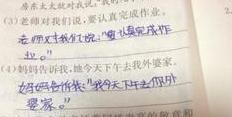 房东太太就对我说，"我的
(3)老师对我们说，要认真完成作业。
老师对我们说："要认真完成作
业。"
(4)妈妈告诉我，她今天下午去我外婆家。
妈妈告诉我："我今天下午去你外
婆家。"